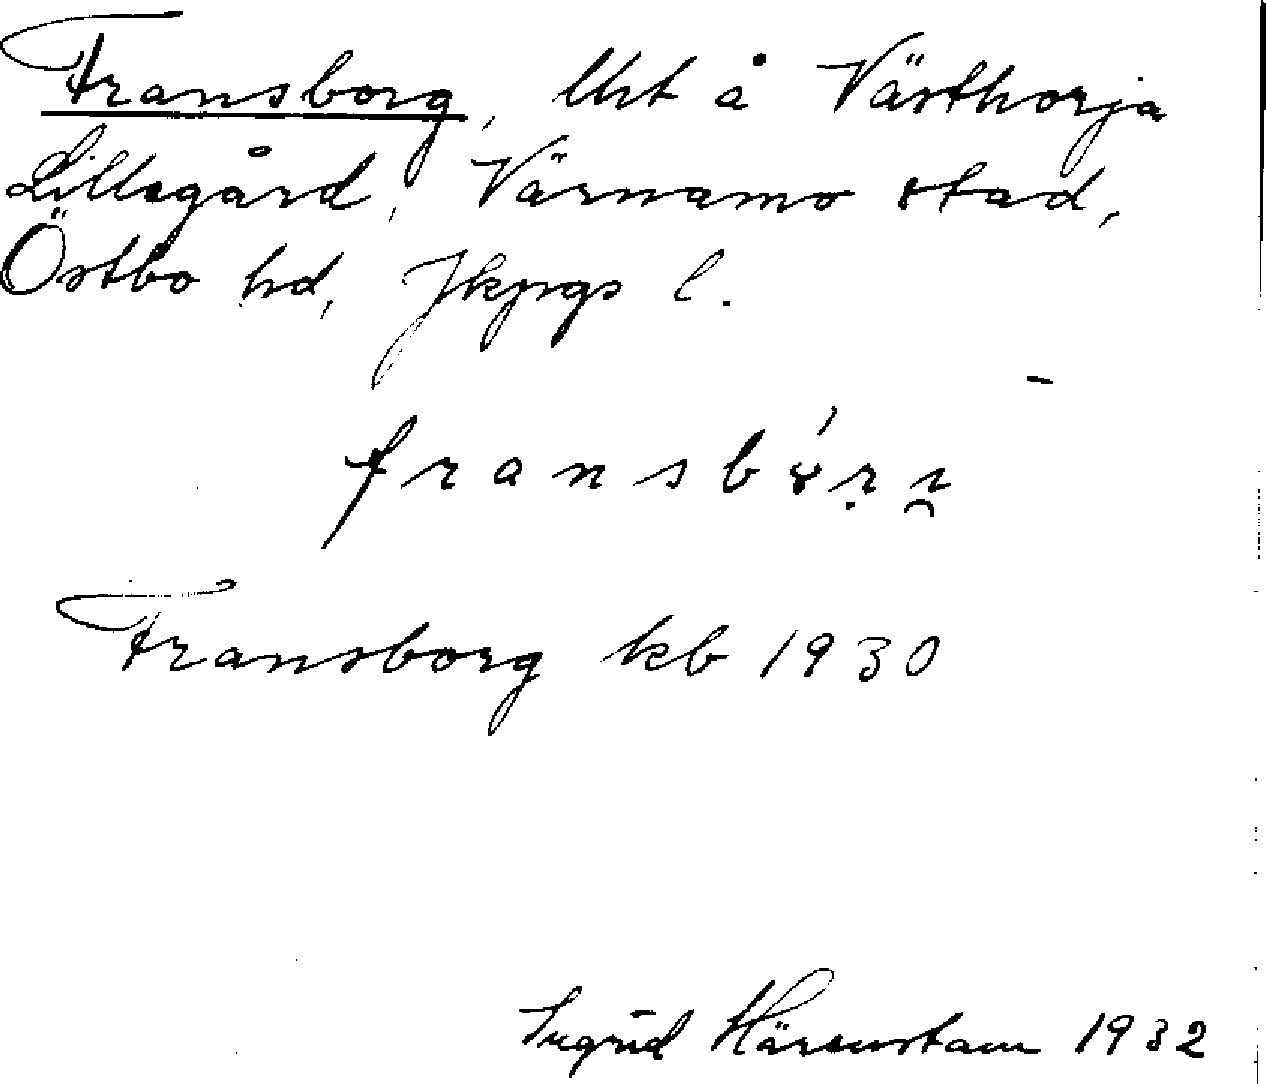 Fransborg, lht å Västhorja
Lillegård, Värnamo stad,
Östbo hd, Jkpgs l.
fransbórı
Fransborg kb 1930
Ingrid Härenstam 1932